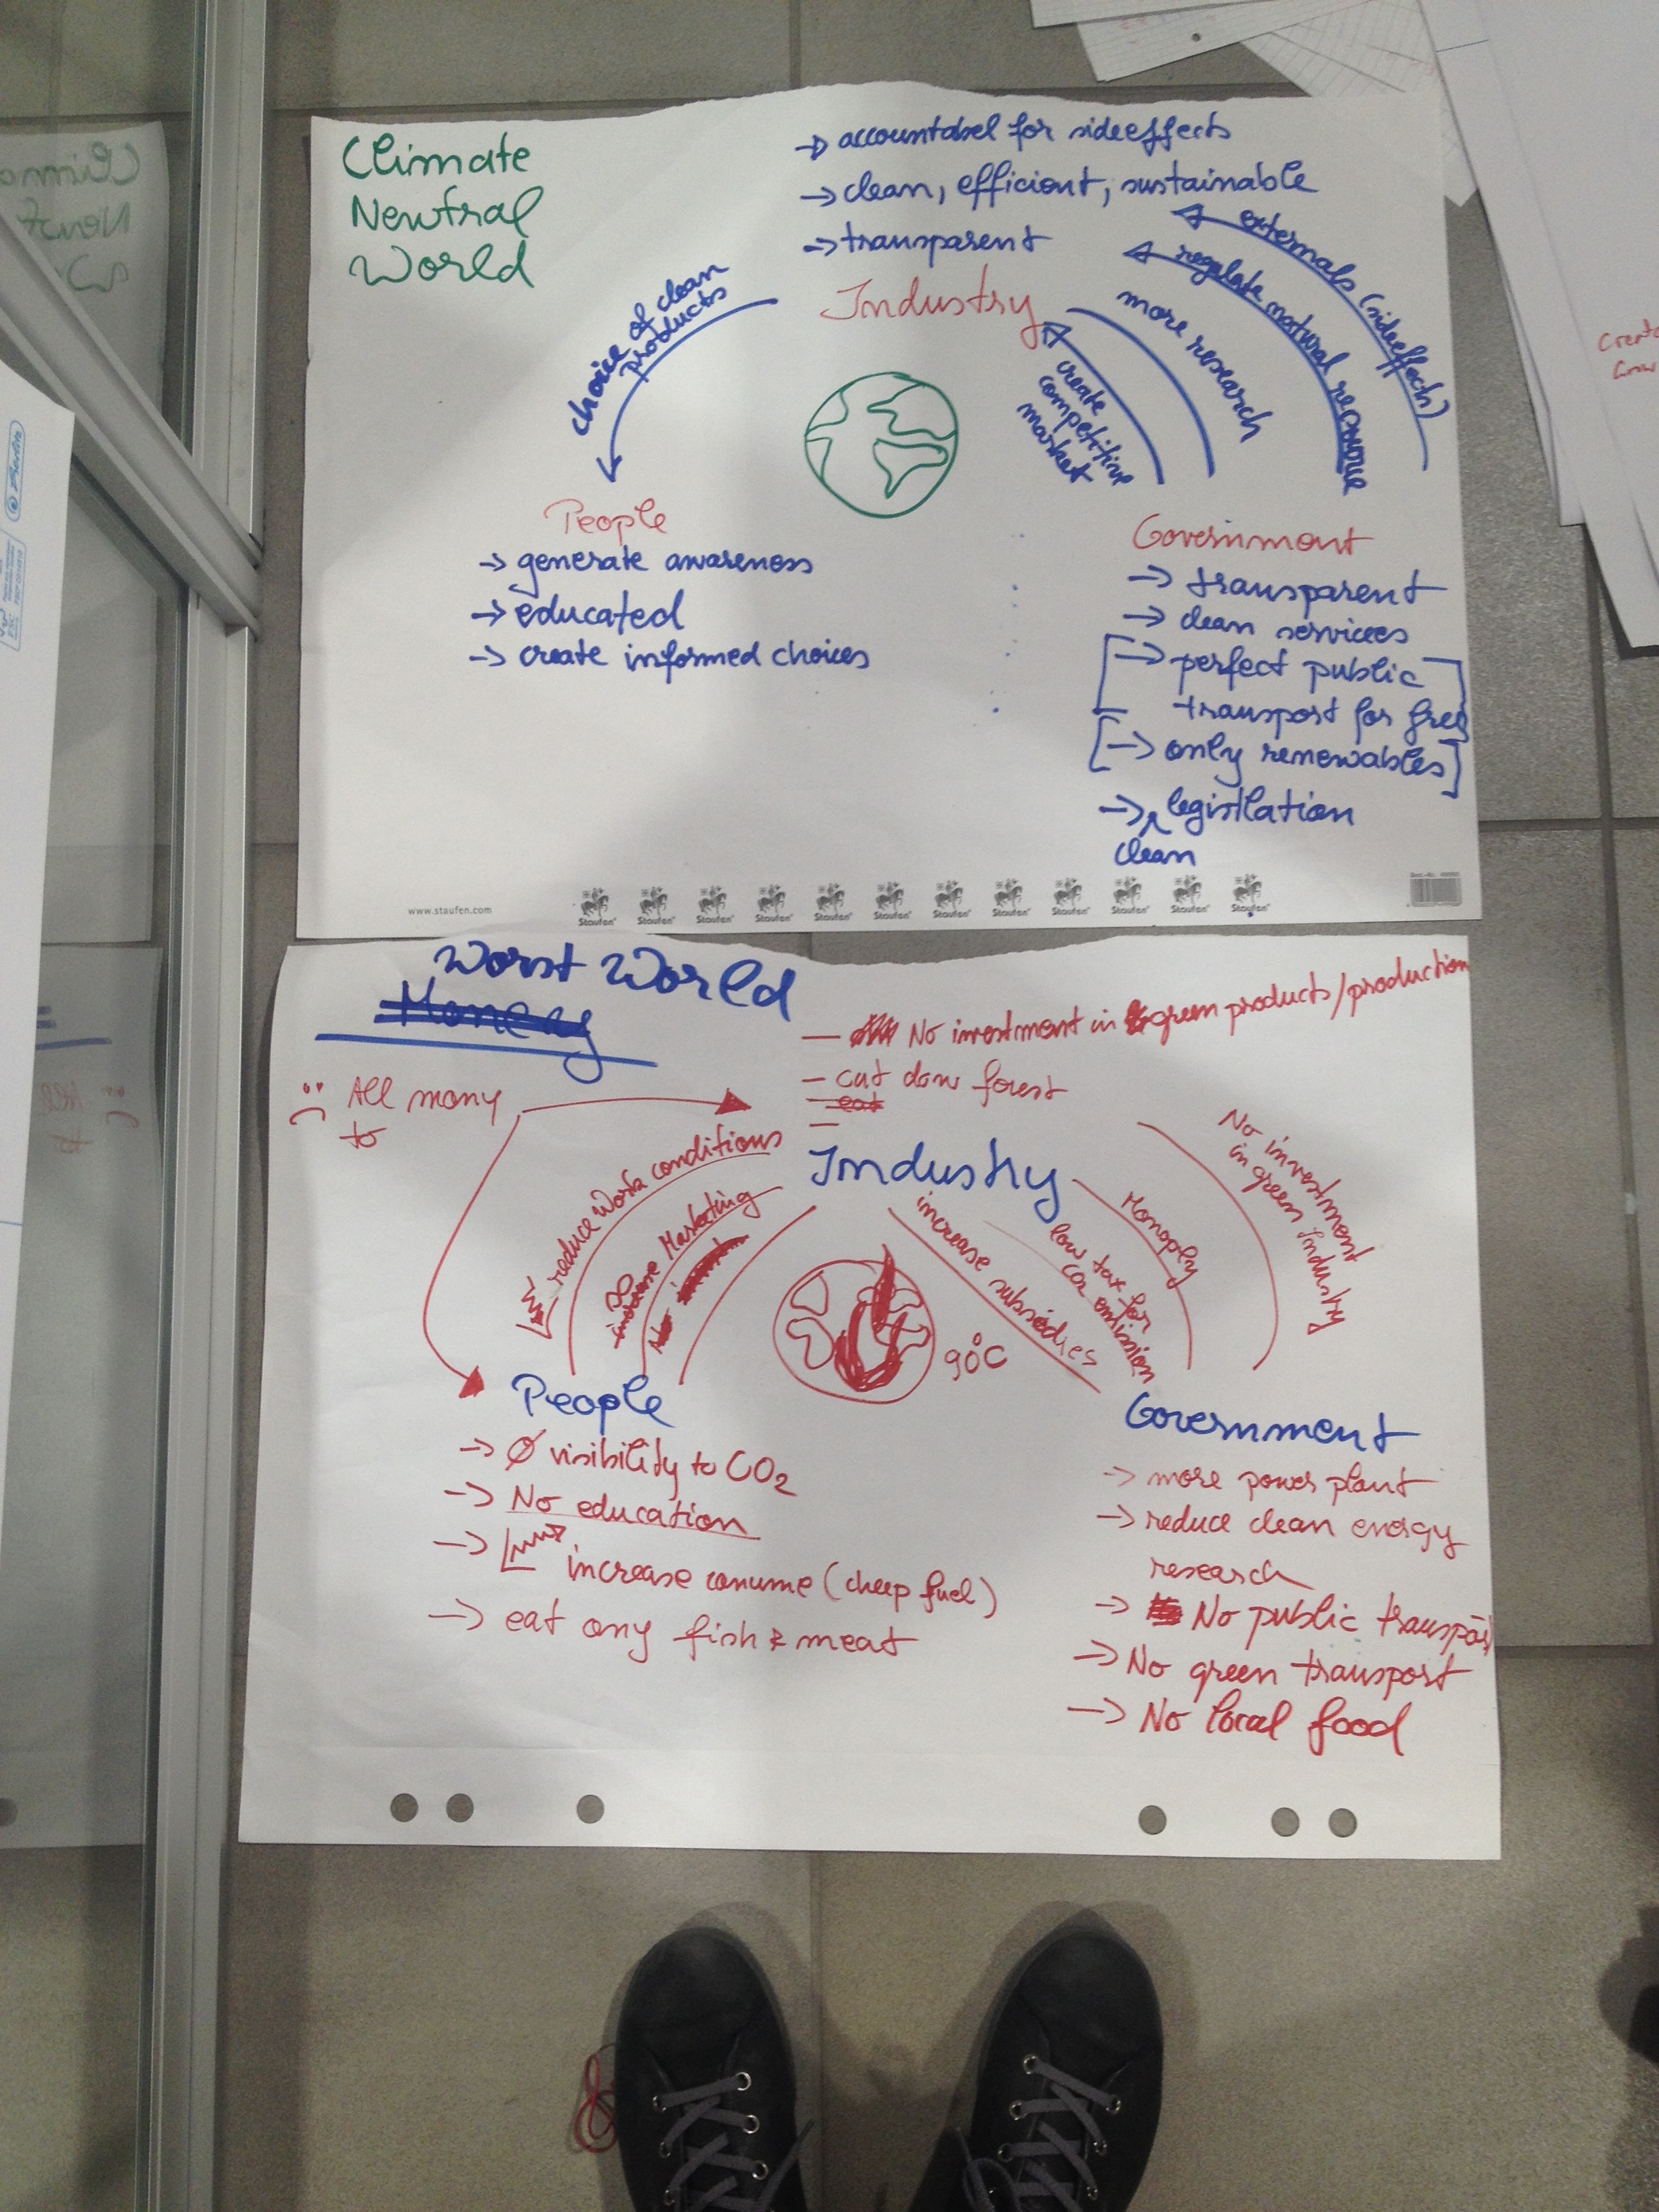 Climate
Neutral
World
→ accountabel for sideeffects
→ clean, efficient, sustainable
→ transparent
Industry
choice of clean
products
create
competitive
market
more research
regulate natural resource
externals (sideeffects)
People
→ generate awareness
→ educated
→ create informed choices
Government
→ transparent
→ clean services
[→ perfect public
transport for free]
[→ only renewables]
→ legistlation
clean
www.staufen.com
Staufen Staufen Staufen Staufen Staufen Staufen Staufen Staufen Staufen Staufen Staufen Staufen
Worst World
Money
— No investment in green products/production
— cut down forest
— eat
—
All many
to
Industry
reduce work conditions
increase Marketing
No
increase subsidies
low tax for
co2 emission
Monoply
No investment
in green Industry
90°C
People
→ Ø visibility to CO2
→ No education
→ increase conume (cheep fuel)
→ eat ony fish & meat
Government
→ more power plant
→ reduce clean energy
research
→ No public transport
→ No green transport
→ No local food